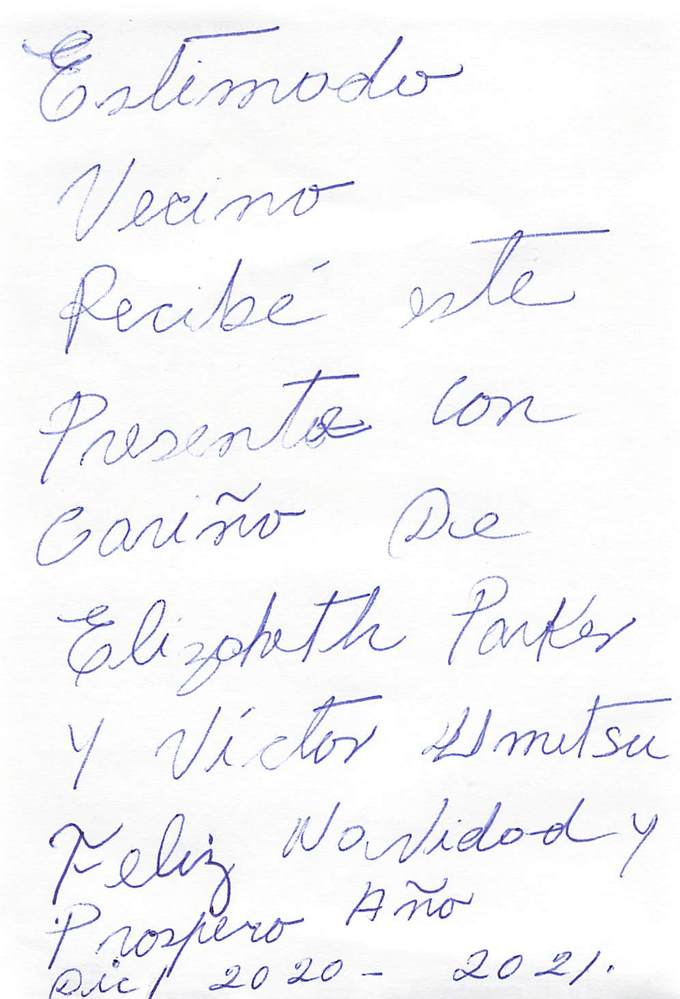 Estimado
Vecino
Recibé este
Presente con
Cariño De
Elizabeth Parker
Y Víctor Umetsu
Feliz Navidad y
Prospero Año
Dic/ 2020 - 2021.